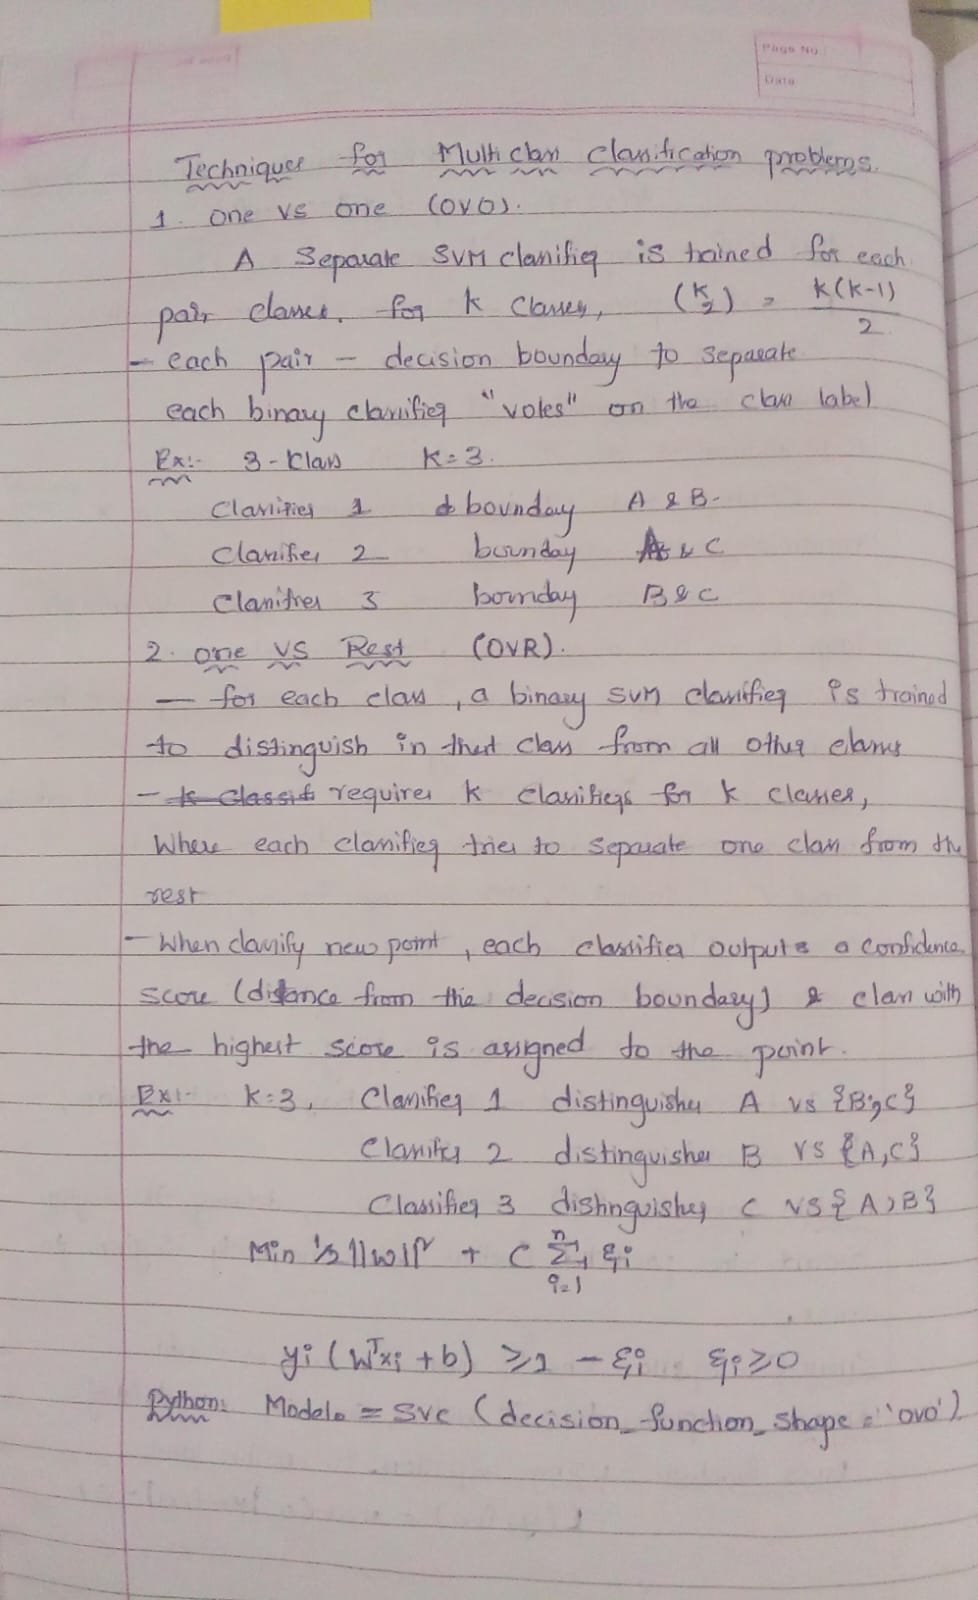 Page No
Date
Techniques for Multi class classification problems.
1. one vs one (OVO).
A Separate SVM classifier is trained for each
pair classes. for k classes, (k 2) = k(k-1)/2
- each pair - decision boundary to separate
each binary classifier "votes" on the class label
Ex:- 3-klass K=3.
Classifier 1 boundary A & B.
Classifier 2 boundary A & C
Classifier 3 boundary B & C
2. one vs Rest (OVR).
- for each class, a binary SVM classifier is trained
to distinguish in that class from all other classes
- requires k classifiers for k classes,
Where each classifier tries to separate one class from the
rest
- When classify new point, each classifier outputs a confidence
score (distance from the decision boundary) & class with
the highest score is assigned to the point.
Ex:- k=3, Classifier 1 distinguishes A vs {B,C}
Classifier 2 distinguishes B vs {A,C}
Classifier 3 distinguishes C vs {A,B}
Min ½||w||² + C Σ ξi
i=1
yi (Wᵀxi + b) ≥ 1 - ξi ξi ≥ 0
Python: Model = SVC (decision_function_shape = 'ovo')